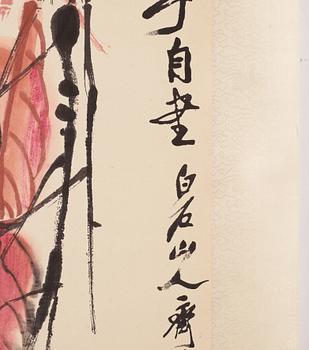 自書白石山人齊